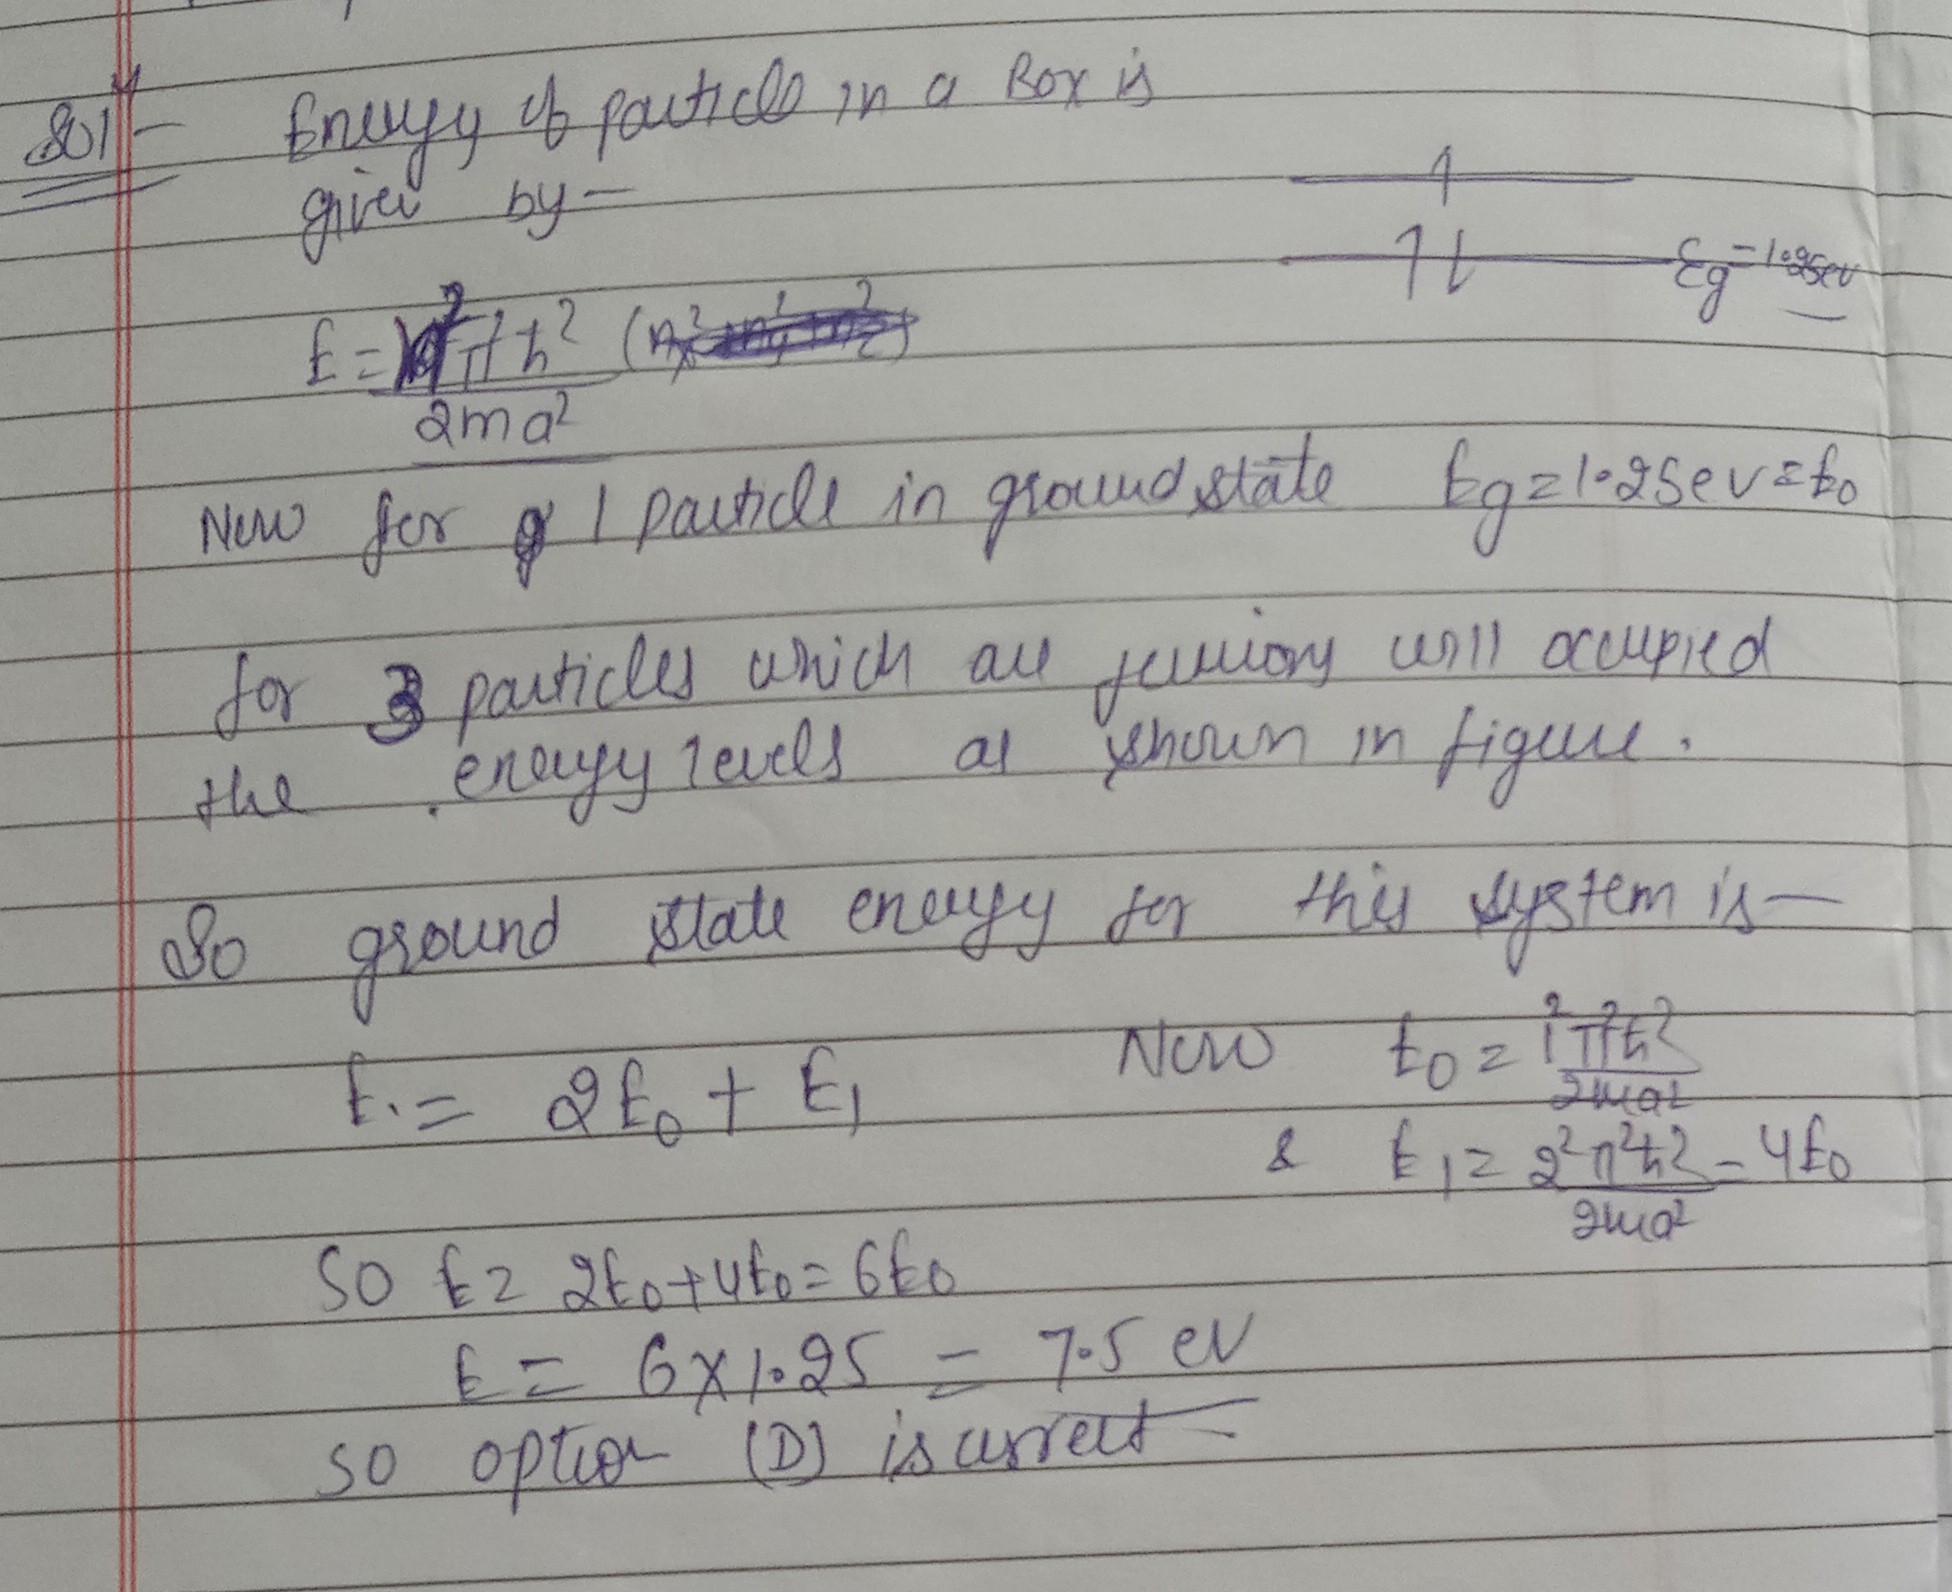 Sol -
Energy of particle in a Box is
given by -
Eg = 1.25ev
E = n²π²ħ²
2ma²
Now for 1 particle in ground state Eg = 1.25ev = E₀
for 3 particles which are fermions will occupied
the energy levels as shown in figure.
So ground state energy for this system is -
E = 2E₀ + E₁
Now E₀ = 1²π²ħ²
2ma²
& E₁ = 2²π²ħ² = 4E₀
2ma²
So E = 2E₀ + 4E₀ = 6E₀
E = 6 × 1.25 = 7.5 eV
So option (D) is correct